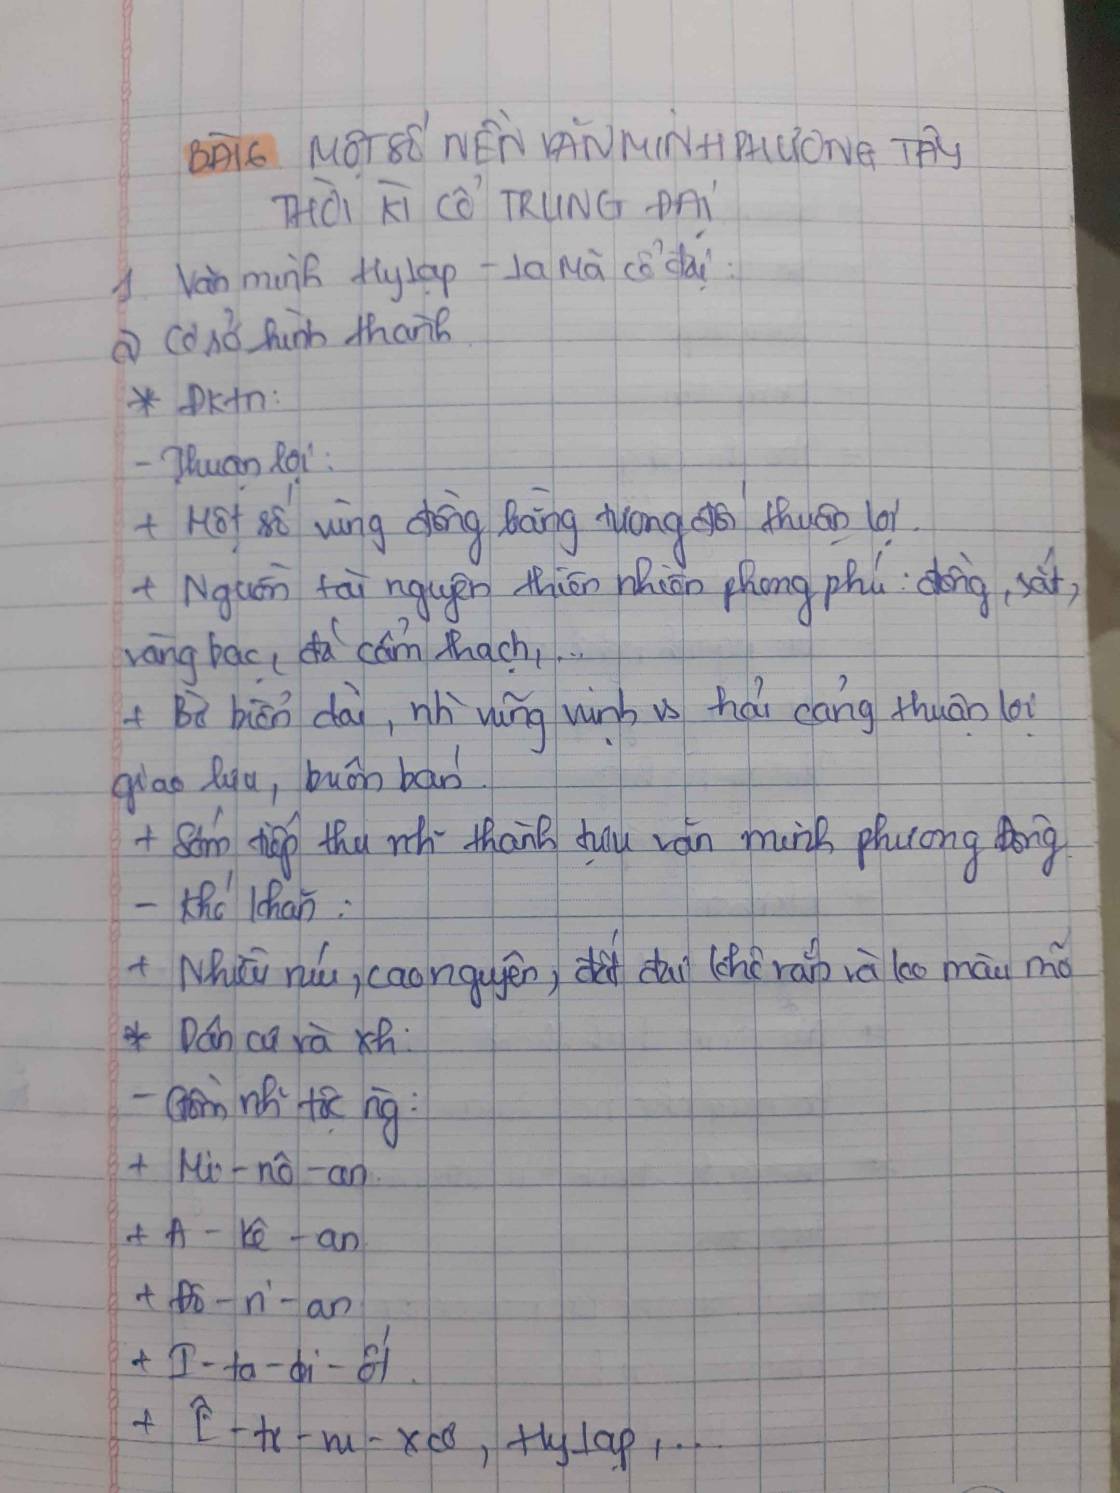 BÀI 6 MỘT SỐ NỀN VĂN MINH PHƯƠNG TÂY
THỜI KÌ CỔ TRUNG ĐẠI
1. Văn minh Hy Lạp - La Mã cổ đại:
a) Cơ sở hình thành
* Đktn:
- Thuận lợi:
+ Một số vùng đồng bằng tương đối thuận lợi.
+ Nguồn tài nguyên thiên nhiên phong phú: đồng, sắt,
vàng bạc, đá cẩm thạch,...
+ Bờ biển dài, nh vũng vịnh vs hải cảng thuận lợi
giao lưu, buôn bán.
+ Sớm tiếp thu nh thành tựu văn minh phương Đông.
- Khó khăn:
+ Nhiều núi, cao nguyên, đất đai khô rắn và ko màu mỡ
* Dân cư và xh:
- Gồm nh tộc ng:
+ Mi-nô-an.
+ A-kê-an
+ Đô-ri-an
+ I-ta-li-ốt.
+ Ê-tơ-ru-xcơ, Hy Lạp,...